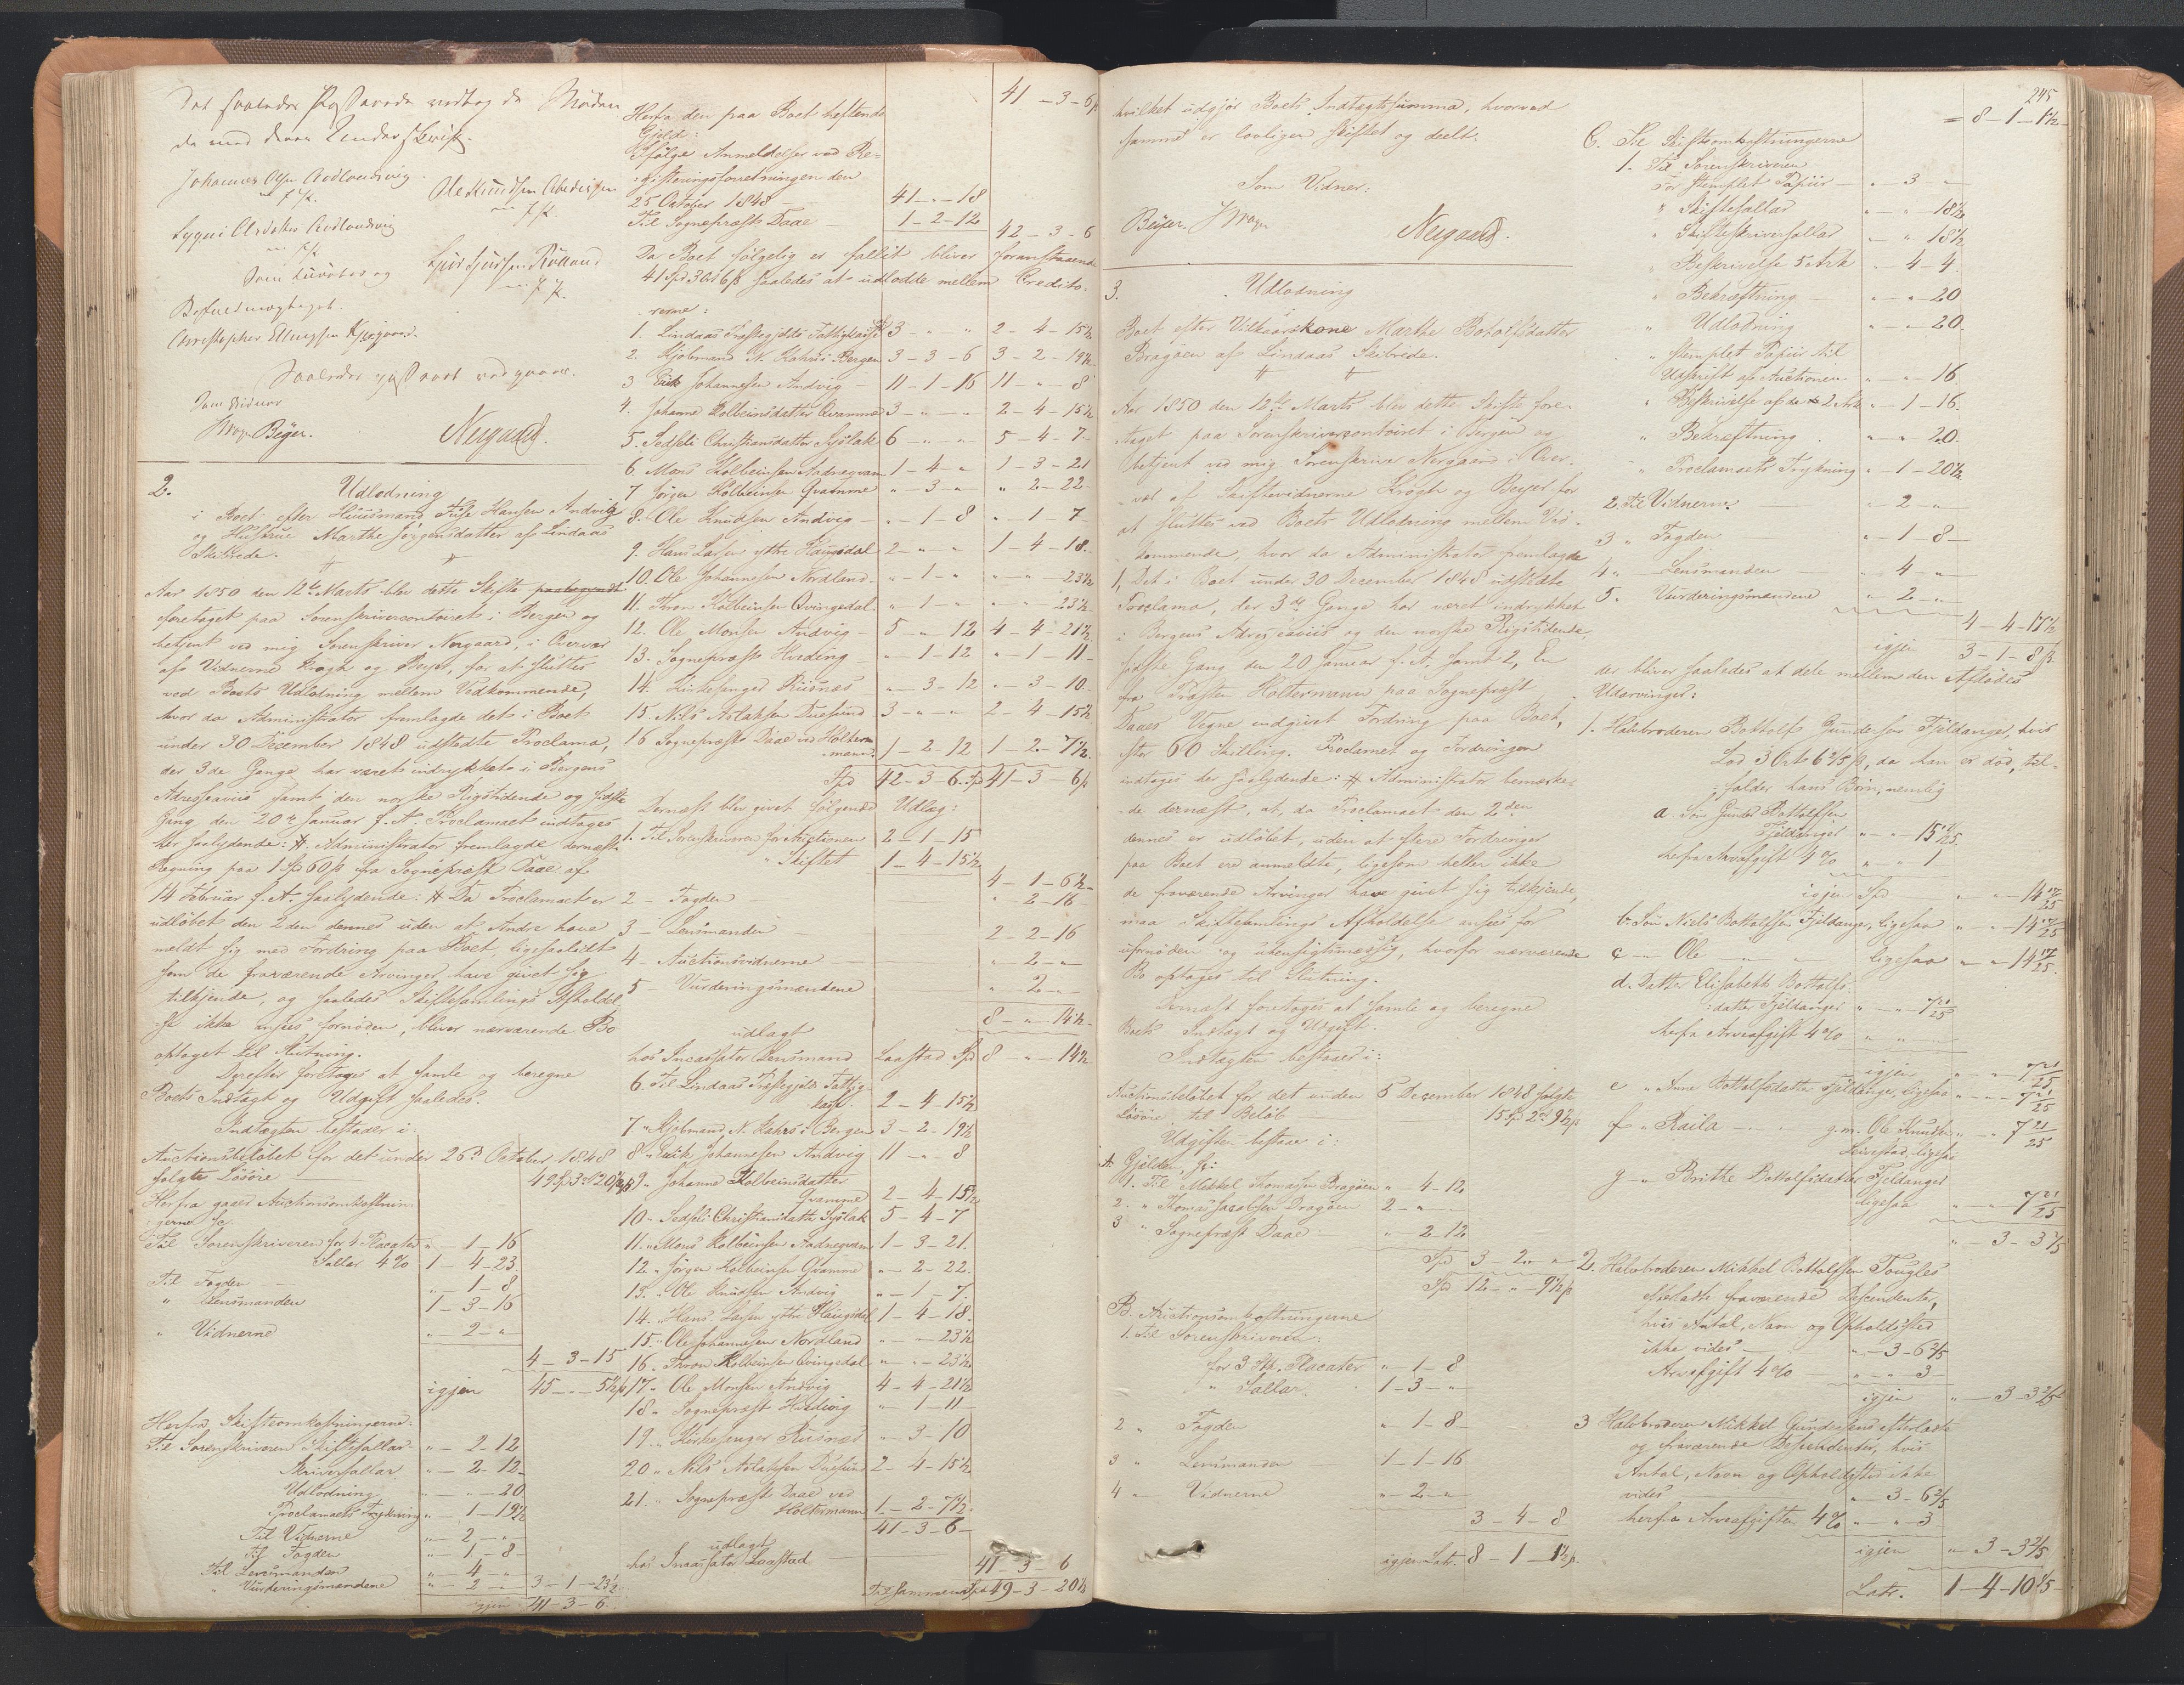 Det saaledes Passerede vedtog de Mødende
de med deres Underskrift.
Johannes Olsen Audlandsvig
m. f. P.
Ole Knudsen
m. f. P.
Audlandsvig
m. f. P.
Som Curator og
Befuldmægtiget.
Christopher Ellingsen Kjeegaard.
Saaledes passeret vedgaaes.
Som Vidner
Krogh Beyer. Nergaard.
2.
Udlodning
i Boet efter Huusmand Hansen Andvig
og Hustrue Marthe Jørgensdatter af Lindaas
Skibrede.
Aar 1850 den 12te Marts blev dette Skifte paabegyndt
foretaget paa Sorenskrivercontoiret i Bergen og
betjent ved mig Sorenskriver Nergaard, i Overvær
af Vidnerne Krogh og Beyer, for at sluttes
ved Boets Udlodning mellem Vedkommende,
hvor da Administrator fremlagde det i Boet
under 30 December 1848 udstedte Proclama,
der 3de Gange har været indrykket i Bergens
Adresseaviis samt den norske Rigstidende og sidste
Gang den 20de Januar f. A. Proclamaet indtages
her saalydende: # Administrator fremlagde dernæst
Regning paa 1 Spd 60 ß fra Sognepræst Daae af
14 Februar f. A. saalydende: # Da Proclamaet er
udløbet den 2den dennes uden at Andre have
meldt sig med Fordring paa Boet, ligesaalidt
som de fraværende Arvinger have givet sig
tilkjende, og saaledes Skiftesamlings Afholdel
se ikke ansees fornøden, bliver nærværende Bo
optaget til Slutning.
Derefter foretages at samle og beregne
Boets Indtægt og Udgift saaledes.
Indtægten bestaaer i:
Auctionsbeløbet for det under 26d October 1848
solgte Løsøre — 49 Spd 3 ort 20½ ß
Herfra gaaer Auctionsomkostnin-
gerne
Til Sorenskriveren for 4 Placater " — 1 — 16
Sallar 4% 1 — 4 — 23.
Til Fogden — " — 1 — 8
" Lensmanden 1 — 3 — 16
" Vidnerne " — 2 — "
4 — 3 — 15
igjen 45 — " — 5½ ß
Herfra Skifteomkostningerne:
Til Sorenskriveren Skiftesallar " — 2 — 12
Skriversallar " — 2 — 12
Udlodning " — " — 20
Proclamaets Trykning " — 1 — 19½
Til Vidnerne " — 2 — "
Til Fogden " — 1 — 8
Til Lensmanden " — 4 — "
" Vurderingsmændene " — 2 — " 3 — 1 — 23½
igjen 41 — 3 — 6.
41 — 3 — 6 ß
Herfra den paa Boet heftende
Gjeld:
Ifølge Anmeldelser ved Re-
gisteringsforretningen den
25 October 1848 — 41 — " — 18
Til Sognepræst Daae — 1 — 2 — 12
42 — 3 — 6
Da Boet følgelig er fallit bliver foranstaaende
41 Spd 3 ort 6 ß saaledes at udlodde mellem Credito-
rerne:
1. Lindaas Præstegjelds Fattigkasse 3 — " — " 2 — 4 — 15½
2. Kjøbmand N. Kahrs i Bergen 3 — 3 — 6 3 — 2 — 19½
3 Erik Johannesen Andvig — 11 — 1 — 16 11 — " — 8
4. Johanne Kolbeinsdatter Qvamme 3 — " — " 2 — 4 — 15½
5. Sedseli Christiansdatter Syslak 6 — " — " 5 — 4 — 7
6 Mons Kolbeinsen 1 — 4 — " 1 — 3 — 21
7 Jørgen Kolbeinsen Qvamme " — 3 — " " — 2 — 22
8. Ole Knudsen Andvig — " — 1 — 8 " — 1 — 7
9. Hans Larsen yttre Haugsdal 2 — " — " 1 — 4 — 18.
10. Ole Johannesen Nordland. " — 1 — " " — " — 23½
11. Thron Kolbeinsen Qvingedal. " — 1 — " " — " — 23½
12. Ole Monsen Andvig — 5 — " — 12 4 — 4 — 21½
13. Sognepræst Hvиding — " — 1 — 12 " — 1 — 11
14. Kirkesanger Risnæs — " — 3 — 12 " — 3 — 10
15. Nils Aslaksen Duesund 3 — " — " 2 — 4 — 15½
16 Sognepræst Daae ved Holter-
mann 1 — 2 — 12 1 — 2 — 7½.
Spd 42 — 3 — 6. Spd 41 — 3 — 6 ß
Dernæst blev givet følgende Udlæg:
1. Til Sorenskriveren for Auctionen 2 — 1 — 15
" Skiftet 1 — 4 — 15½
4 — 1 — 6½
2 — Fogden — " — 2 — 16
3 — Lensmanden — 2 — 2 — 16
4 — Auctionsvidnerne — " — 2 — "
5 — Vurderingsmændene " — 2 — "
8 — " — 14½
udlagt
hos Incassator Lensmand Laastad Spd 8 — " — 14½
6. Til Lindaas Præstegjelds Fattig-
kasse 2 — 4 — 15½
7 " Kjøbmand N. Kahrs i Bergen 3 — 2 — 19½
8 " Erik Johannesen Andvig 11 — " — 8
9 " Johanne Kolbeinsdatter
Qvamme 2 — 4 — 15½
10 " Sedseli Christiansdatter Syslak 5 — 4 — 7
11. " Mons Kolbeinsen 1 — 3 — 21.
12. " Jørgen Kolbeinsen Qvamme " — 2 — 22.
13. " Ole Knudsen Andvig " — 1 — 7
14. " Hans Larsen yttre Haugsdal 1 — 4 — 18
15. " Ole Johannesen Nordland " — " — 23½
16. " Thron Kolbeinsen Qvingedal " — " — 23½
17 " Ole Monsen Andvig 4 — 4 — 21½
18 " Sognepræst Hvиding " — 1 — 11
19. " Kirkesanger Risnæs " — 3 — 10
20 " Nils Aslaksen Duesund 2 — 4 — 15½
21. " Sognepræst Daae ved
Holtermann 1 — 2 — 7½.
41 — 3 — 6
udlagt
hos Incassator Laastad — 41 — 3 — 6
Tilsammen Spd 49 — 3 — 20½
hvilket udgjør Boets Indtægtssumma, hvorved
samme er lovligen skiftet og deelt.
Som Vidner:
Beyer. Krogh Nergaard.
3.
Udlodning
i Boet efter Vilkaarskone Marthe Botolfsdatter
Dragøen af Lindaas Skibrede.
Aar 1850 den 12te Marts blev dette Skifte fore-
taget paa Sorenskrivercontoiret i Bergen og
betjent ved mig Sorenskriver Nergaard i Over-
vær af Skiftevidnerne Krogh og Beyer for
at sluttes ved Boets Udlodning mellem Ved-
kommende, hvor da Administrator fremlagde
1, Det i Boet under 30 December 1848 udstedte
Proclama, der 3de Gange har været indrykket
i Bergens Adresseaviis og den norske Rigstidende,
sidste Gang den 20 Januar f. A. samt 2, En
fra Præsten Holtermann paa Sognepræst
Daaes Vegne indgivet Fordring paa Boet,
stor 60 Skilling. Proclamet og Fordringen
indtages her saalydende: # Administrator bemærke-
de dernæst, at, da Proclamaet den 2den
dennes er udløbet, uden at flere Fordringer
paa Boet ere anmeldte, ligesom heller ikke
de fraværende Arvinger have givet sig tilkjende,
maa Skiftesamlings Afholdelse ansees for
ufornøden og uhensigtsmæssig, hvorfor nærværende
Bo optages til Slutning.
Dernæst foretages at samle og beregne
Boets Indtægt og Udgift.
Indtægten bestaaer i:
Auctionsbeløbet for det under 5 December 1848 solgte
Løsøre til Beløb — 15 Spd 2 ort 9½ ß
Udgiften bestaaer i:
A. Gjelden,
1. Til Mikkel Thomassen Dragøen " — 4 — 12
2. " Thomas Jacobsen Dragøen 2 — " — "
3 " Sognepræst Daae — " — 2 — 12
Spd 3 — 2 — "
Spd 12 — " — 9½ ß
B. Auctionsomkostningerne
1. Til Sorenskriveren:
for 3 Stk. Placater " — 1 — 8
" Sallar. 1 — 3 — "
2 " Fogden " — 1 — 8
3 " Lensmanden — 1 — 1 — 16
4 " Vidnerne " — 2 — "
3 — 4 — 8
igjen Latr. 8 — 1 — 1½ ß.
245
= 8 — 1 — 1½
C. Til Skifteomkostningerne
1. Til Sorenskriveren
For stemplet Papiir — " — 3 — "
" Skiftesallar " — " — 18½
" Skifteskriversallar " — " — 18½
" Beskrivelse 5 Ark " — 4 — 4
" Bekræftning — " — " — 20
" Udlodning " — " — 20.
" stemplet Papiir til
Udskrift af Auctionen " — " — 16
" Beskrivelse af do 2 Ark " — 1 — 16.
" Bekræftning " — " — 20
" Proclamaets Trykning " — 1 — 20½
2. Til Vidnerne " — 2 — "
3 " Fogden " — 1 — 8
4 " Lensmanden — " — 4 — "
5. Vurderingsmændene " — 2 — "
4 — 4 — 17½
igjen 3 — 1 — 8 ß.
der bliver saaledes at dele mellem den Afdødes
Udarvinger:
1. Halvbroderen Bottolf Gundersen Fjeldanger, hvis
Lod 3 Ort 6 2/5 ß, da han er død, til-
falder hans Børn, nemlig
a. Søn Gunder Bottolfsen
Fjeldanger " — " — 15 17/25
herfra Arvafgift 4% " — " — 1
igjen Spd " — " — 14 17/25
b. Søn Niels Bottolfsen Fjeldanger, ligesaa " — " — 14 17/25
c — " Ole — " — ligesaa " — " — 14 17/25.
d. Datter Elisabeth Bottolfs-
datter Fjeldanger " — " — 7 21/25
herfra Arveafgift 4% " — " — "
igjen " — " — 7 21/25
e " Anne Bottolfsdatter Fjeldanger, ligesaa " — " — 7 21/25
f " Raila — " — g. m. Ole Knudsen
Leirestad, ligesaa " — " — 7 21/25
g — " Brithe Bottolfsdatter Fjeldanger
ligesaa " — " — 7 21/25
" — 3 — 3 2/5
2. Halvbroderen Mikkel Bottolfsen
efterladte fraværende Descendenter,
hvis Antal, Navn og Opholdssted
ikke vides — " — 3 — 6 2/5
Arvafgift 4% — " — " — 3
igjen " — 3 — 3 2/5
3 Halvbroderen Mikkel Gundersens efterladte
og fraværende Descendenter, hvis
Antal, Navn og Opholdssted ikke
vides " — 3 — 6 2/5
herfra Arveafgiften 4% " — " — 3
igjen " — 3 — 3 2/5
Latr. 1 — 4 — 10 1/5